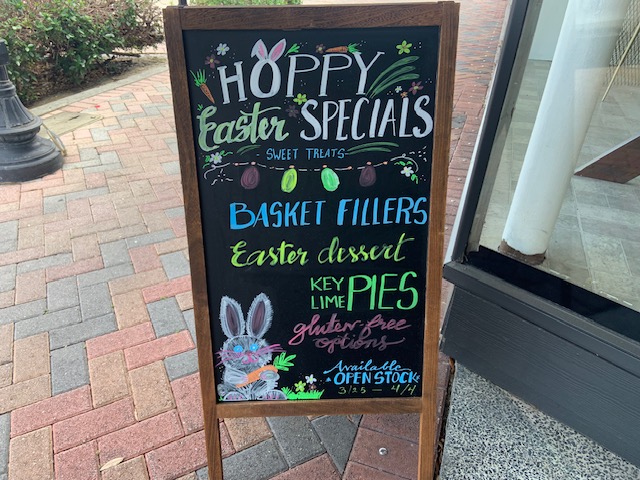 HOPPY
Easter SPECIALS
SWEET TREATS
BASKET FILLERS
Easter dessert
KEY LIME PIES
gluten-free
options
Available
OPEN STOCK
3/25 - 4/4